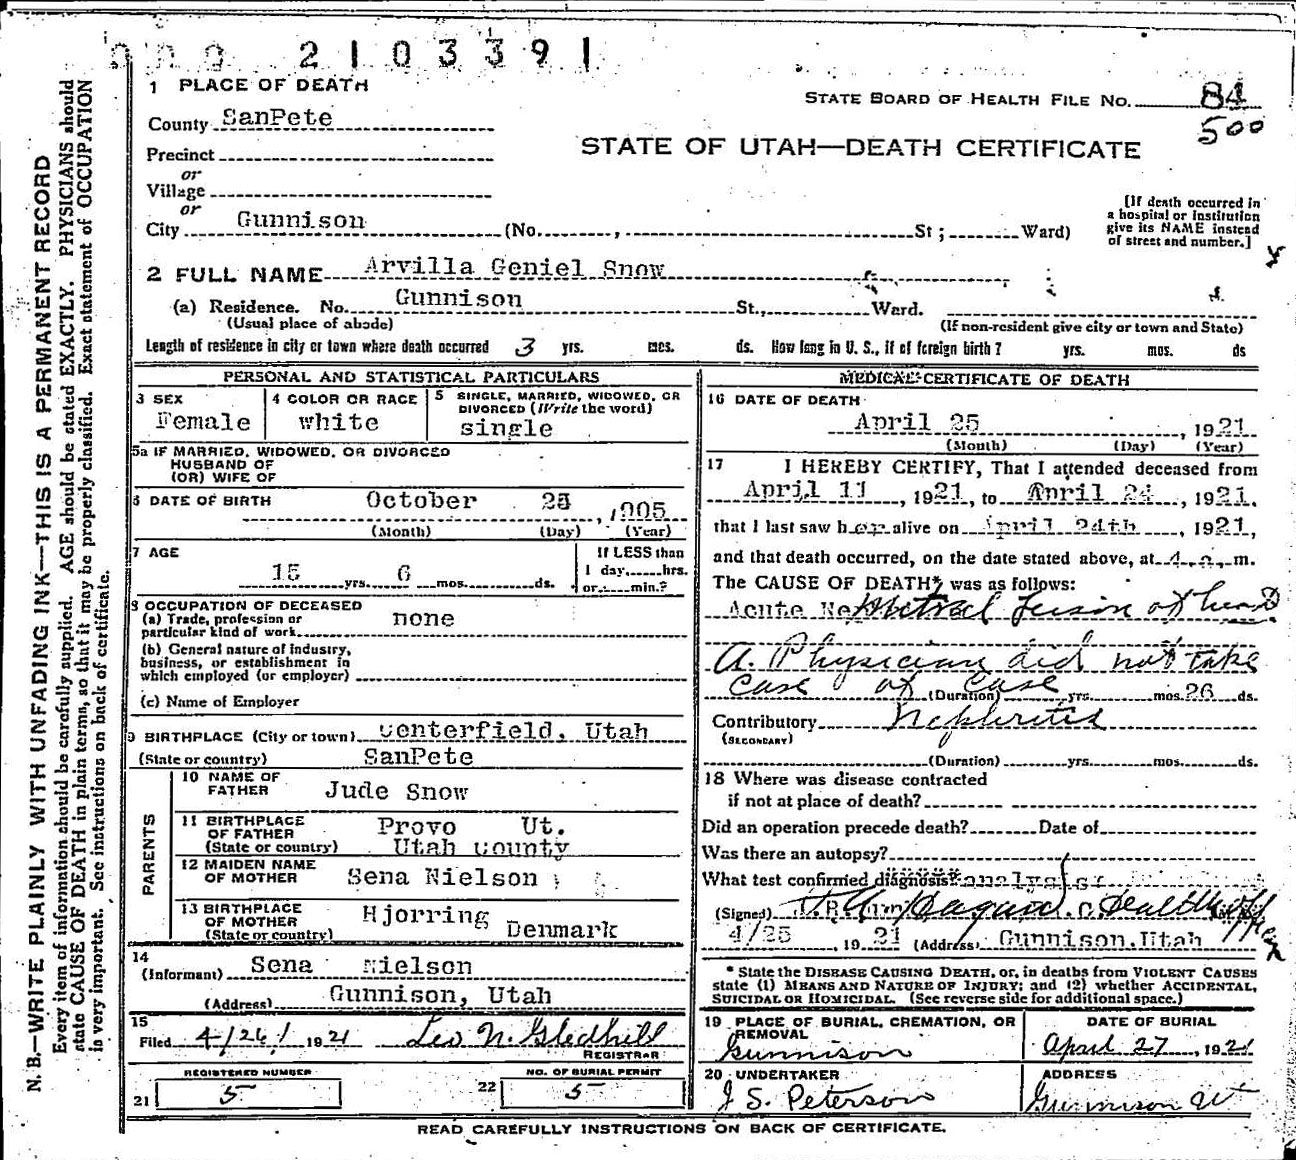 2 1 0 3 3 9 1
1 PLACE OF DEATH
STATE BOARD OF HEALTH FILE NO. 84
County SanPete
500
STATE OF UTAH—DEATH CERTIFICATE
Precinct
or
Village
or
City Gunnison (No. , St ; Ward)
[If death occurred in
a hospital or institution
give its NAME instead
of street and number.]
2 FULL NAME Arvilla Geniel Snow
(a) Residence. No. Gunnison St., Ward.
(Usual place of abode) (If non-resident give city or town and State)
Length of residence in city or town where death occurred 3 yrs. mos. ds. How long in U. S., if of foreign birth? yrs. mos. ds
PERSONAL AND STATISTICAL PARTICULARS
3 SEX
Female
4 COLOR OR RACE
white
5 SINGLE, MARRIED, WIDOWED, OR
DIVORCED (Write the word)
single
5a IF MARRIED, WIDOWED, OR DIVORCED
HUSBAND OF
(OR) WIFE OF
6 DATE OF BIRTH October 25, 1905
(Month) (Day) (Year)
7 AGE
15 yrs. 6 mos. ds.
If LESS than
1 day, hrs.
or min.?
8 OCCUPATION OF DECEASED
(a) Trade, profession or
particular kind of work none
(b) General nature of industry,
business, or establishment in
which employed (or employer)
(c) Name of Employer
9 BIRTHPLACE (City or town) Centerfield, Utah
(State or country) SanPete
PARENTS
10 NAME OF
FATHER Jude Snow
11 BIRTHPLACE
OF FATHER Provo Ut.
(State or country) Utah County
12 MAIDEN NAME
OF MOTHER Sena Nielson
13 BIRTHPLACE
OF MOTHER Hjorring
(State or country) Denmark
14
(Informant) Sena Nielson
(Address) Gunnison, Utah
15
Filed 4/26/ 1921 Leo N. Gledhill
REGISTRAR
REGISTERED NUMBER
21 5
NO. OF BURIAL PERMIT
22 5
MEDICAL CERTIFICATE OF DEATH
16 DATE OF DEATH
April 25, 1921
(Month) (Day) (Year)
17 I HEREBY CERTIFY, That I attended deceased from
April 11, 1921, to April 24, 1921,
that I last saw her alive on April 24th, 1921,
and that death occurred, on the date stated above, at 4 a. m.
The CAUSE OF DEATH* was as follows:
Acute
A. Physician did not take
Case of Case (Duration) yrs. mos. 26 ds.
Contributory Nephritis
(SECONDARY)
(Duration) yrs. mos. ds.
18 Where was disease contracted
if not at place of death?
Did an operation precede death? Date of
Was there an autopsy?
What test confirmed diagnosis? analysis
(Signed)
4/25, 1921 (Address) Gunnison, Utah
* State the DISEASE CAUSING DEATH, or, in deaths from VIOLENT CAUSES
state (1) MEANS AND NATURE OF INJURY; and (2) whether ACCIDENTAL,
SUICIDAL OR HOMICIDAL. (See reverse side for additional space.)
19 PLACE OF BURIAL, CREMATION, OR
REMOVAL
Gunnison
DATE OF BURIAL
April 27, 1921
20 UNDERTAKER
J S. Peterson
ADDRESS
Gunnison Ut
READ CAREFULLY INSTRUCTIONS ON BACK OF CERTIFICATE.
N. B.—WRITE PLAINLY WITH UNFADING INK—THIS IS A PERMANENT RECORD
Every item of information should be carefully supplied. AGE should be stated EXACTLY. PHYSICIANS should
state CAUSE OF DEATH in plain terms, so that it may be properly classified. Exact statement of OCCUPATION
is very important. See instructions on back of certificate.